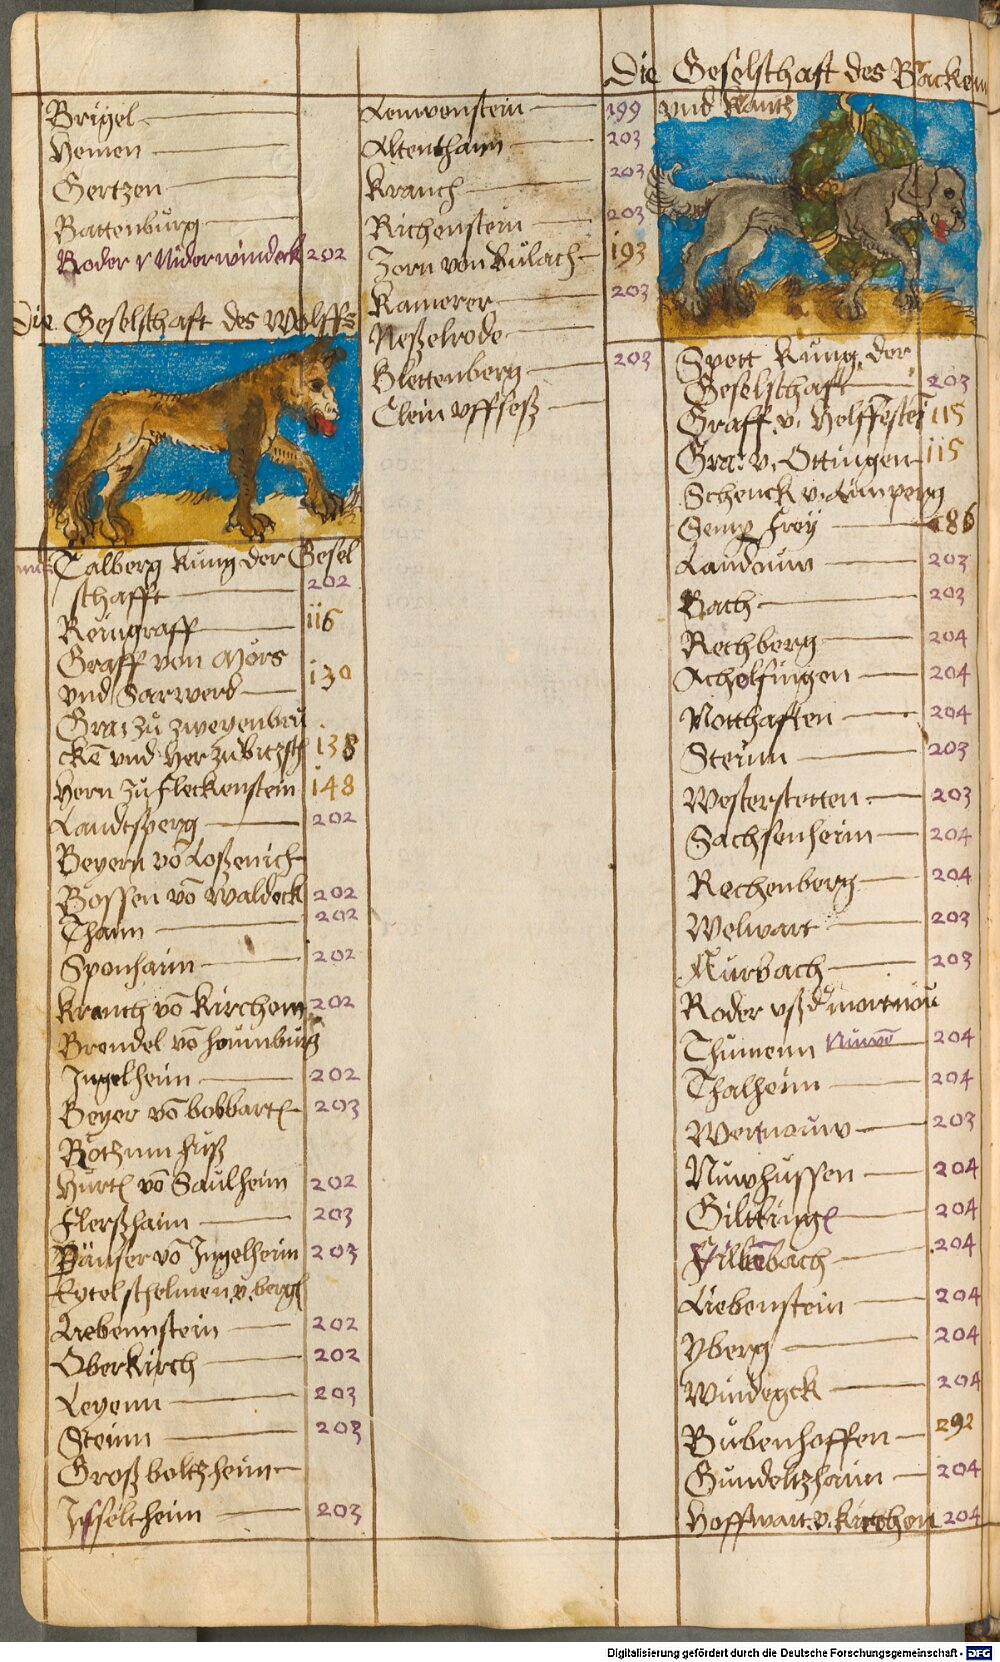 Brigel
Hemen
Gertzen
Battenburg
Roder v Niderwindeck 202
Die Geselschaft des Wolffs
Talberg Kung der Gesel
schafft 202
Reingraff 116
Graff von Mörs
vnd Sarwerd 130
Gra: zu zweyenbru
cke vnd Her zu bitzsch 138
Hern zu Fleckenstein 148
Landtsperg 202
Beyern vō Loßenich
Bossen vō Waldeck 202
Thann 202
Sponhaim 202
Kranch vō Kirchem 202
Brendel vō
Ingelheim 202
Beyer vō bobbart 203
Hurt vō Saulheim 202
Flerßhaim 203
vō Ingelheim 203
v. berg
Liebennstein 202
Oberkirch 202
Leyenn 203
Steinn 203
Groß boltzheim
203
Lewenstein 199
Altenthann 203
Kranch 203
Richenstein 203
Zorn von Bulach 193
Kamerer 203
Neßelrode
Blettenberg 203
Clein vffseß
Die Geselschaft des Bracken
vnd Krantz
Spett Kung der
Geselschafft 203
Graff v. Helffestei 115
Gra: v. Ottingen 115
Schenck v. Limperg
Semp frey 186
Landouw 203
Bach 203
Rechberg 204
Achelfingen 204
Notthafften 204
Steinn 203
Westerstetten 203
Sachsenheim 204
Rechenberg 204
Welwart 203
Aurbach 203
Roder vß d mortnou
Thumenn Nuwē 204
Thalheim 204
Wernouw 203
Nuwhussen 204
Giltling 204
Silkēbach 204
Liebenstein 204
Yberg 204
Windegck 204
Bubenhoffen 292
Gundeltzhaim 204
Hoffwart. v. Kirchen 204
Digitalisierung gefördert durch die Deutsche Forschungsgemeinschaft - DFG